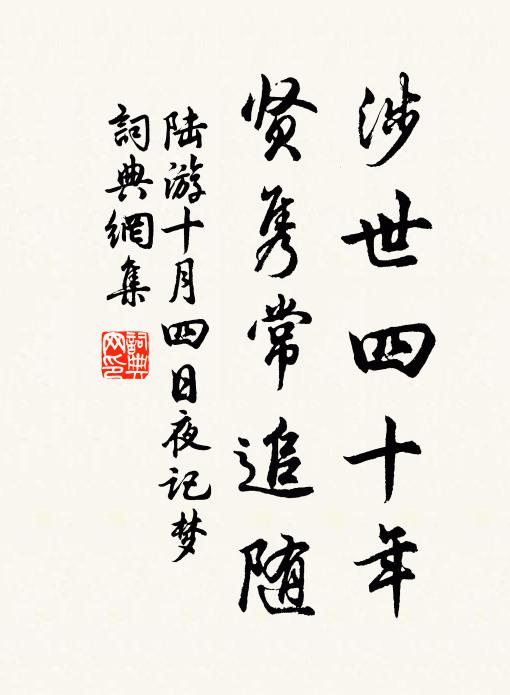 涉世四十年
贤隽常追随
陆游十月四日夜记梦
詞典網集
詞典网印